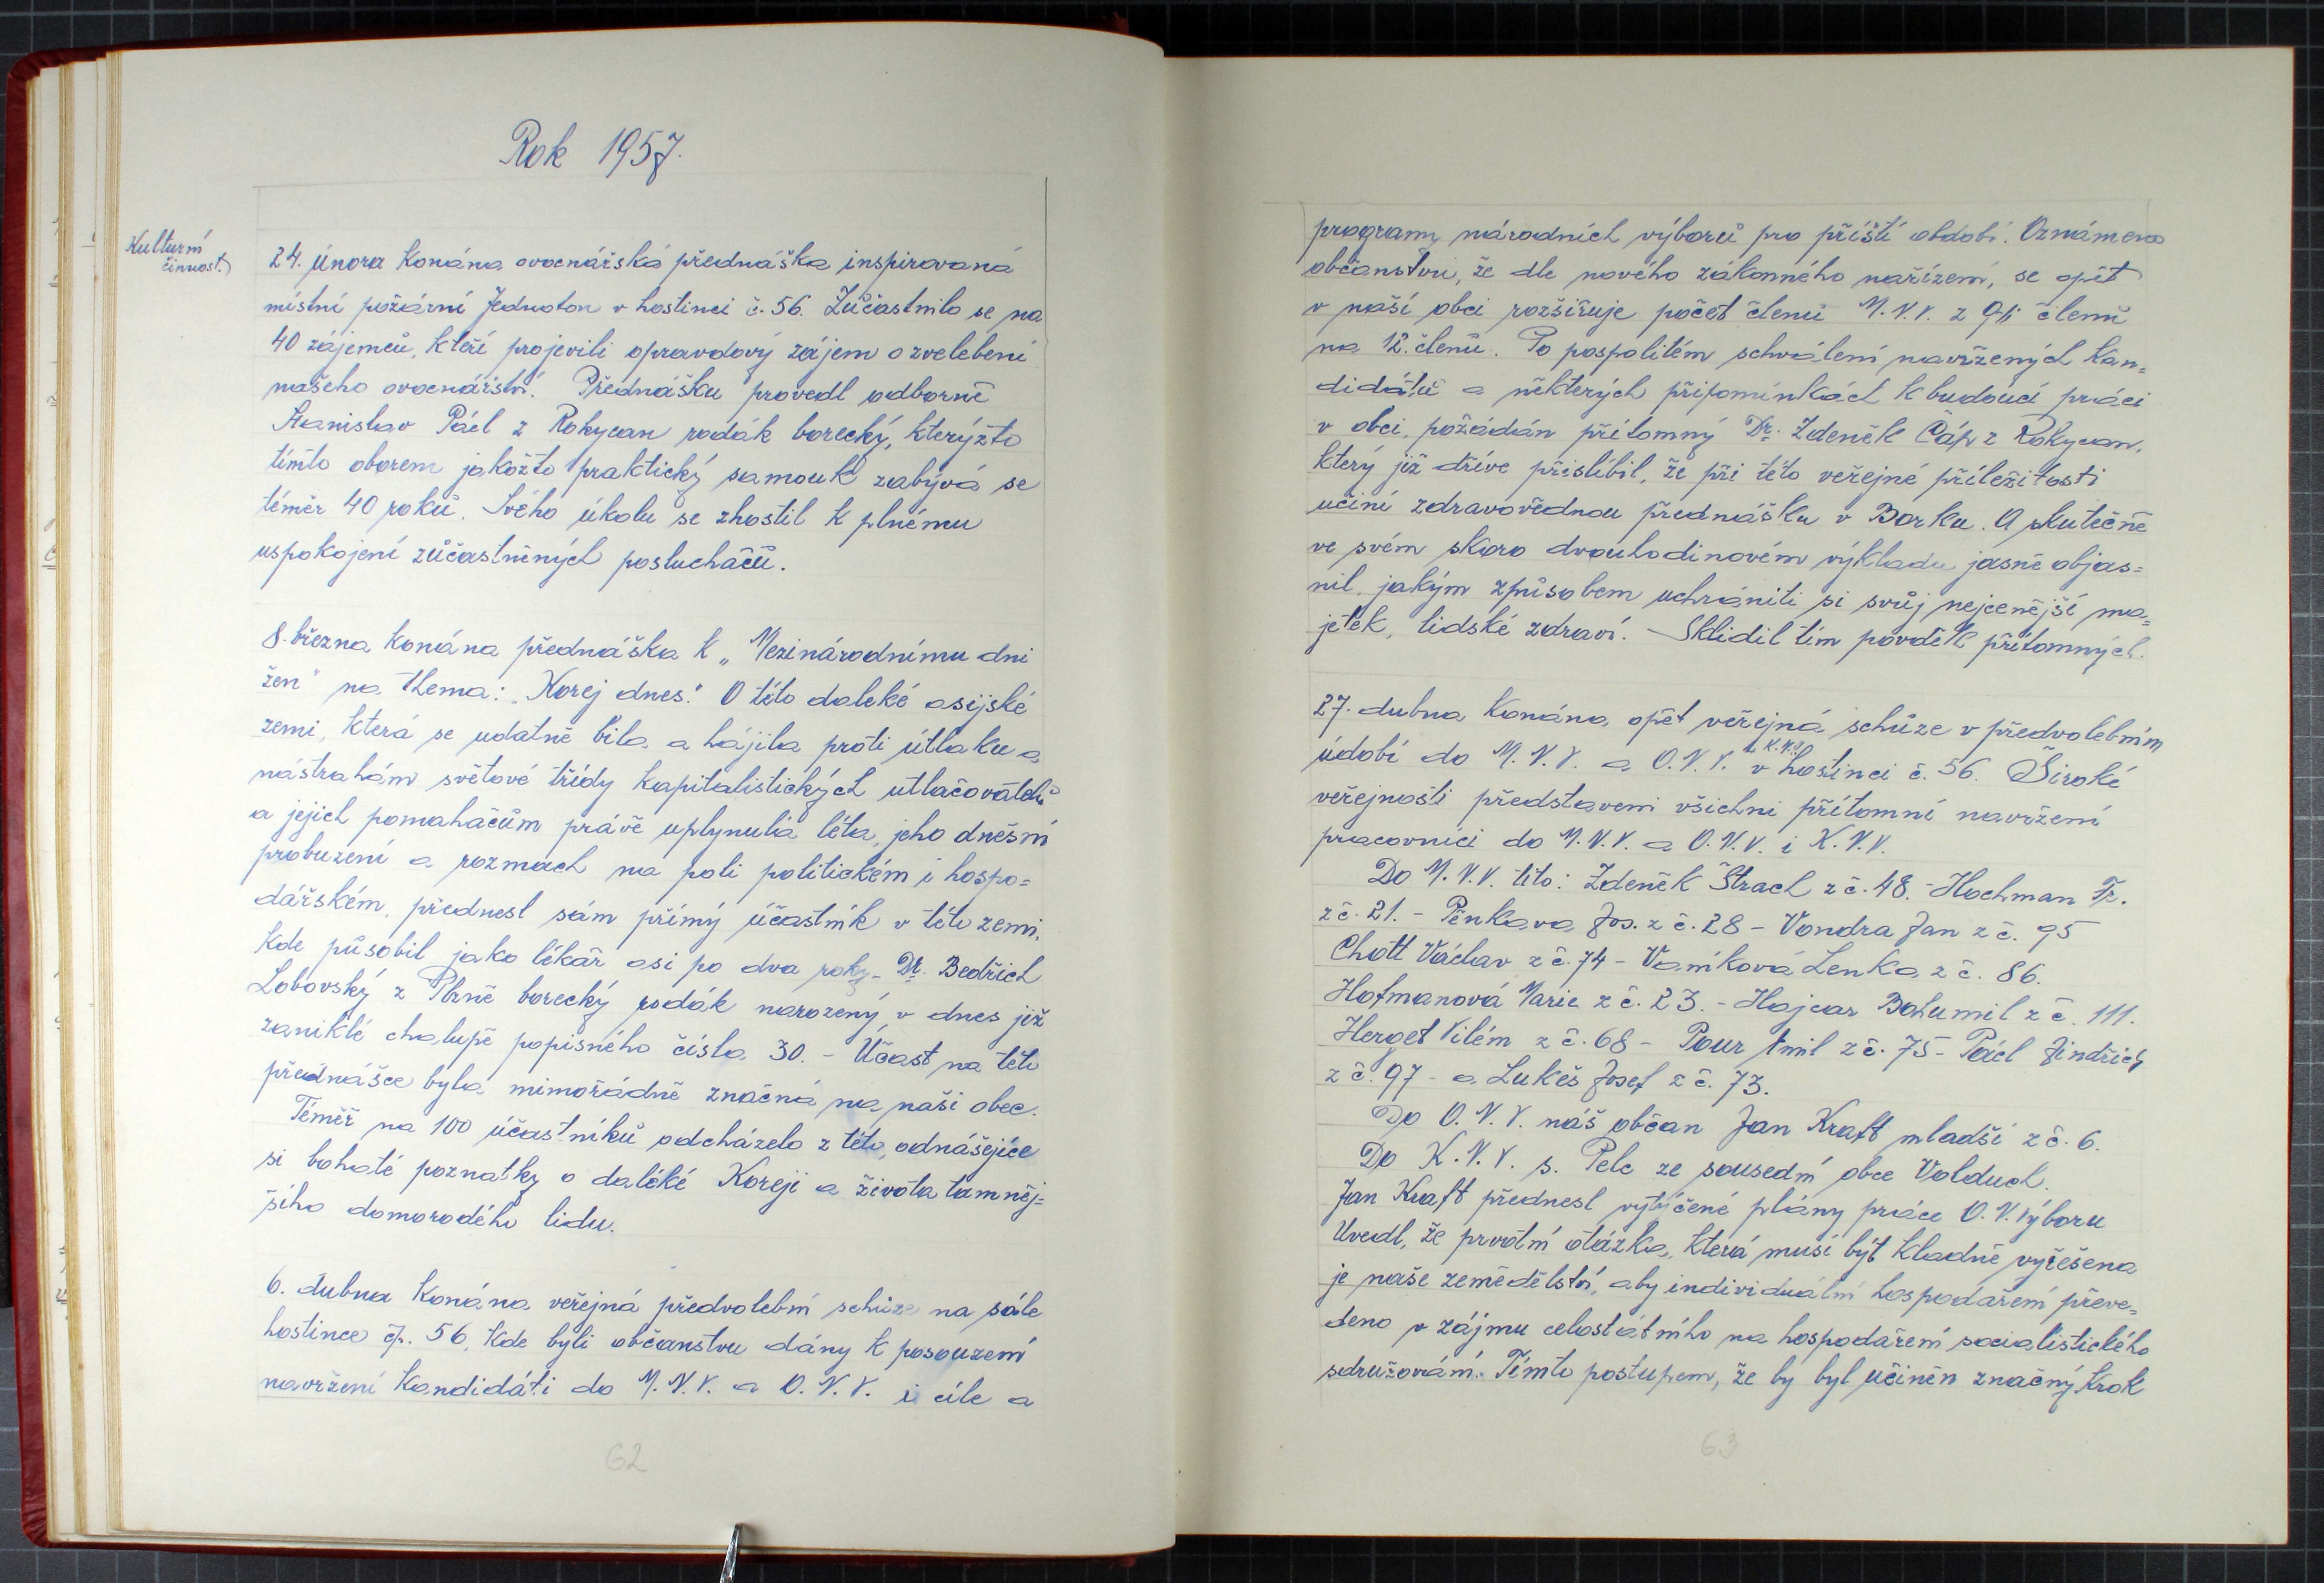 Rok 1957.
Kulturní
činnost.)
24. února konána ovocnářská přednáška inspirovaná
místní požární Jednotou v hostinci č. 56. Zúčastnilo se na
40 zájemců, kteří projevili opravdový zájem o zvelebení
našeho ovocnářství. Přednášku provedl odborně
Stanislav Pácl z Rokycan rodák borecký, kterýžto
tímto oborem jakožto praktický samouk zabývá se
téměr 40 roků. Svého úkolu se zhostil k plnému
uspokojení zůčastněných posluchačů.
8. března konána přednáška k „Mezinárodnímu dni
žen" na thema: „Korej dnes." O této daleké asijské
zemi, která se udatně bila a hájila proti útlaku a
nástrahám světové třídy kapitalistických utlačovatelů
a jejich pomahačům právě uplynulá léta, jeho dnešní
probuzení a rozmach na poli politickém i hospo=
dářském, přednesl sám přímý účastník v této zemi,
kde působil jako lékař asi po dva roky - Dr. Bedřich
Lobovský z Plzně borecký rodák narozený, v dnes již
zaniklé chalupě popisného čísla 30. - Účast na této
přednášce byla mimořádně značná na naši obec.
Téměř na 100 účastníků odcházelo z této, odnášejíce
si bohaté poznatky o daléké Koreji a života tamněj=
šího domorodého lidu.
6. dubna konána veřejná předvolební schůze na sále
hostince čp. 56, kde byli občanstvu dány k posouzení
navržení kandidáti do M. N. V. a O. N. V. i cíle a
62
programy národních výborů pro příští období. Oznámeno
občanstvu, že dle nového zákonného nařízení, se opět
v naší obci rozšiřuje počet členů M. N. V. z 9ti členů
na 12. členů. Po pospolitém schválení navržených kan=
didátů a některých připomínkách k budoucí práci
v obci, požádán přítomný Dr. Zdeněk Čáp z Rokycan,
který již dříve přislíbil, že při této veřejné příležitosti
učiní zdravovědnou přednášku v Borku. A skutečně
ve svém skoro dvouhodinovém výkladu jasně objas=
nil, jakým způsobem uchrániti si svůj nejcenější ma=
jetek, lidské zdraví. - Sklidil tím povděk přítomných.
27. dubna konána opět veřejná schůze v předvolebním
údobí do M. N. V. a O. N. V. i K.N.V. v hostinci č. 56. Široké
veřejnosti představeni všichni přítomní navržení
pracovníci do M. N. V. a O. N. V. i K. N. V.
Do M. N. V. tito: Zdeněk Štracl z č. 48. - Hochman Fr.
z č. 21. - Pěnkava Jos. z č. 28 - Vondra Jan z č. 95
Chott Václav z č. 74 - Vaníková Lenka z č. 86.
Hofmanová Marie z č. 23. - Hajcar Bohumil z č. 111.
Herget Vilém z č. 68 - Pour Emil z č. 75 - Pácl Jindřich
z č. 97 - a Lukeš Josef z č. 73.
Do O. N. V. náš občan Jan Kraft mladší z č. 6.
Do K. N. V. s. Pelc ze sousední obce Volduch.
Jan Kraft přednesl vytýčené plány práce O. N. Výboru
Uvedl, že prvotní otázka, která musí být kladně vyřešena
je naše zemědělství, aby individuální hospodaření převe=
deno v zájmu celostátního na hospodaření socialistického
sdružování. Tímto postupem, že by byl učiněn značný krok
63